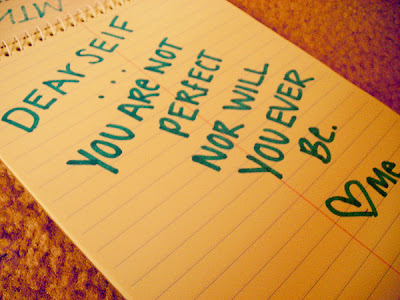 MTN
DEAR SELF
...
YOU ARE NOT
PERFECT
NOR WILL
YOU EVER
BE.
♡ Me